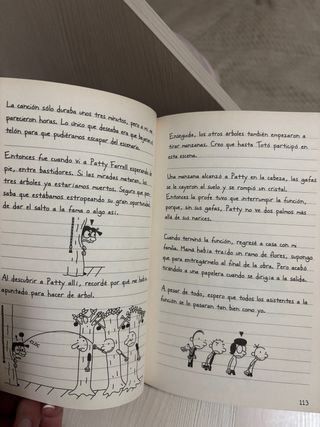 La canción sólo duraba unos tres minutos, pero a mí me
parecieron horas. Lo único que deseaba era que bajaran el
telón para que pudiéramos escapar del escenario.
Entonces fue cuando vi a Patty Farrell esperando
pie, entre bastidores. Si las miradas mataran, los
tres árboles ya estaríamos muertos. Seguro que pen
saba que estábamos estropeando su gran oportunidad
de dar el salto a la fama o algo así.
Al descubrir a Patty allí, recordé por qué me había
apuntado para hacer de árbol.
Enseguida, los otros árboles también empezaron a
tirar manzanas. Creo que hasta Totó participó en
esta escena.
Una manzana alcanzó a Patty en la cabeza, las gafas
se le cayeron al suelo y se rompió un cristal.
Entonces la profe tuvo que interrumpir la función,
porque, sin sus gafas, Patty no ve dos palmos más
allá de sus narices.
Cuando terminó la función, regresé a casa con mi
familia. Mamá había traído un ramo de flores, supongo
que para entregármelo al final de la obra. Pero acabó
tirándolo a una papelera cuando se dirigía a la salida.
A pesar de todo, espero que todos los asistentes a la
función se lo pasaran tan bien como yo.
113